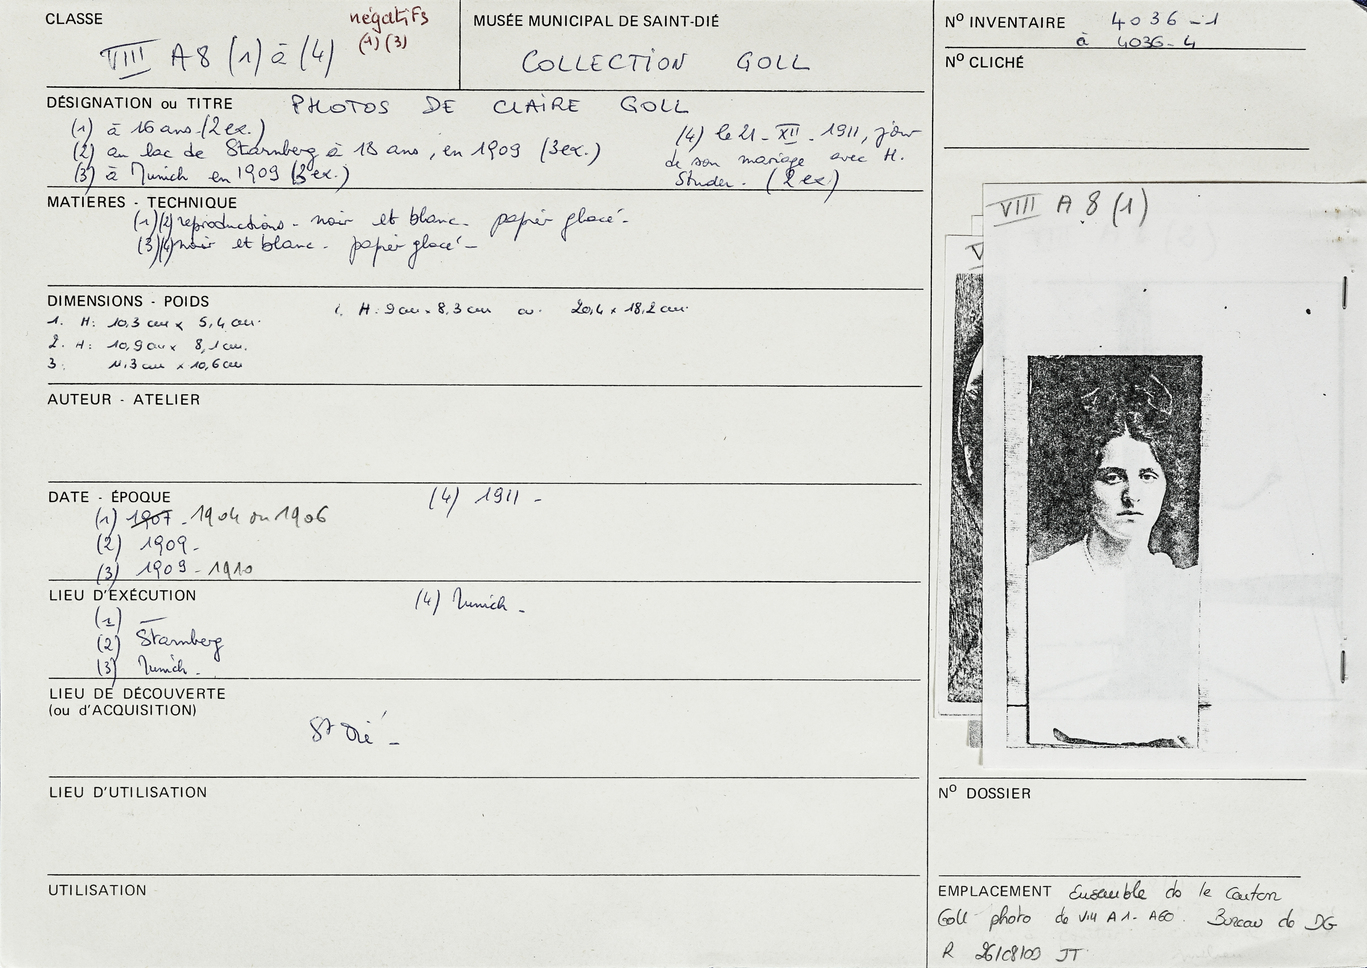 CLASSE
négatifs
(1) (3)
VIII A8 (1) à (4)
MUSÉE MUNICIPAL DE SAINT-DIÉ
COLLECTION GOLL
Nº INVENTAIRE 4036-1
à 4036-4
Nº CLICHÉ
DÉSIGNATION ou TITRE PHOTOS DE CLAIRE GOLL
(1) à 16 ans. (2 ex.)
(2) au lac de Starnberg à 18 ans, en 1909 (3 ex.)
(3) à Munich en 1909 (3 ex.)
(4) le 21 - XII - 1911, jour
de son mariage avec H.
Studer. (2 ex)
MATIÈRES - TECHNIQUE
(1)(2) reproductions - noir et blanc - papier glacé -
(3)(4) noir et blanc - papier glacé -
DIMENSIONS - POIDS
1. H: 10,3 cm x 5,4 cm.
2. H: 10,9 cm x 8,1 cm.
3: 11.3 cm x 10,6 cm
H. 9 cm x 8,3 cm ou 20,4 x 18,2 cm.
AUTEUR - ATELIER
DATE - ÉPOQUE
(1) 1907 - 1904 ou 1906
(2) 1909 -
(3) 1909 - 1910
(4) 1911 -
LIEU D'EXÉCUTION
(1) —
(2) Starnberg
(3) Munich -
(4) Munich -
LIEU DE DÉCOUVERTE
(ou d'ACQUISITION)
St Dié -
LIEU D'UTILISATION
UTILISATION
VIII A 8 (1)
Nº DOSSIER
EMPLACEMENT Ensemble ds le carton
Goll photo de VIII A1 - A60. Bureau de DG
R 26/08/09 JT